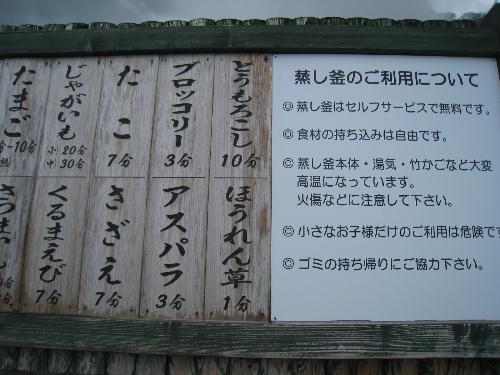 蒸し釜のご利用について
◎ 蒸し釜はセルフサービスで無料です。
◎ 食材の持ち込みは自由です。
◎ 蒸し釜本体・湯気・竹かごなど大変
高温になっています。
火傷などに注意して下さい。
◎ 小さなお子様だけのご利用は危険です
◎ ゴミの持ち帰りにご協力下さい。
とうもろこし
10分
ブロッコリー
3分
たこ
7分
じゃがいも
小 20分
中 30分
たまご
ほうれん草
1分
アスパラ
3分
さざえ
7分
くるまえび
7分